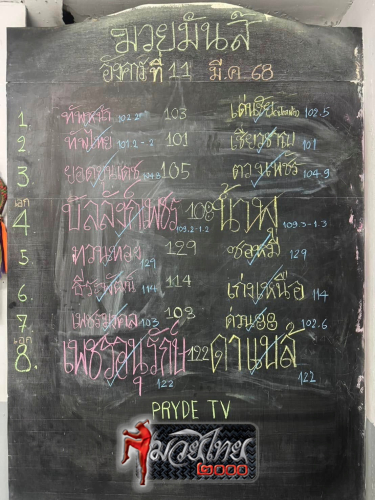 มวยมันส์
อังคารที่ 11 มี.ค 68
1. ทัพหาด 102.2 103 เด่นชัย 102.5
2 ทัพไทย 101.2-2 101 เชียวชาญ 101
3. 104.8 105 ตวงเพชร 104.9
เอก
4. บัลลังก์เพชร 109.2-1.2 109 น้ำพุ 109.3-1.3
5. ทวนทอง 129 129 ซอหมี่ 129
6. ธีรพัฒน์ 114 114 เก่งเหนือ 114
7. เพชรมงคล 103 103 ด่วน99 102.6
เอก
8. เพชรอนุรักษ์ 122 122 ดาเนียล์ 122
PRYDE TV
มวยไทย
2000